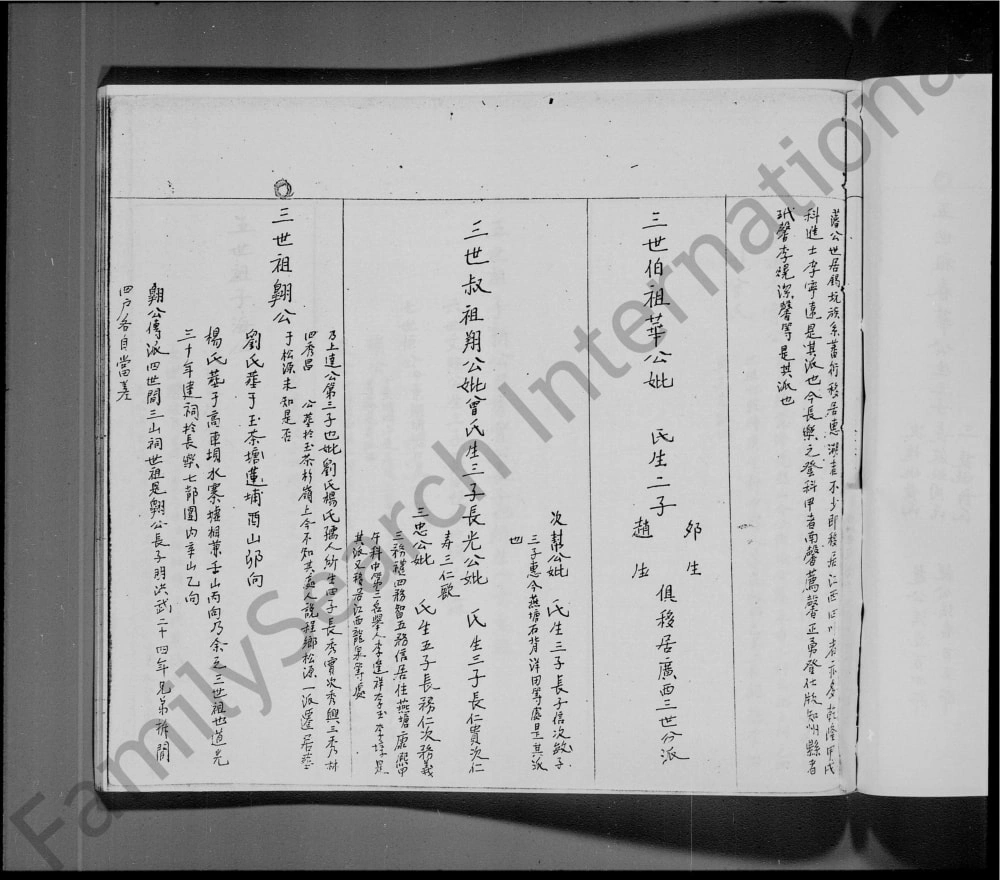 公世居錫坑族系蕃衍移居惠潮者不少即移居江西四川者亦多乾隆甲戌
科進士李寧遠是其派也今長樂之登科甲者南馨薦馨正勇登仕版知州縣者
玳馨李焜潔馨等是其派也
三世伯祖華公妣 氏生二子
郊 生
趙 生
俱移居廣西三世分派
三世叔祖翔公妣曾氏生三子長光公妣 氏生三子長仁貴次仁
壽三仁歐
次幫公妣 氏生三子長子信次敏子
三子惠今燕塘石背洋田等處是其派
也
三忠公妣 氏生五子長務仁次務義
三務禮四務智五務信居住燕塘康熙甲
午科中第二名舉人李逢祥李玉李 是
其派又移居江西龍泉等處
三世祖翱公
乃上達公第三子也妣劉氏楊氏孺人所生四子長秀實次秀興三秀林
四秀昌 公葬於玉茶杉嶺上今不知其 人說程鄉松源一派遷居
于松源未知是否
劉氏葬于玉茶塘蓮埔酉山卯向
楊氏葬于高車壩水寨墟相 壬山丙向乃余之三世祖也道光
三十年建祠於長樂七都圍內辛山乙向
翱公傳派四世開三山祠世祖是翱公長子明洪武二十四年兄弟拆開
四户各自當差
FamilySearch International